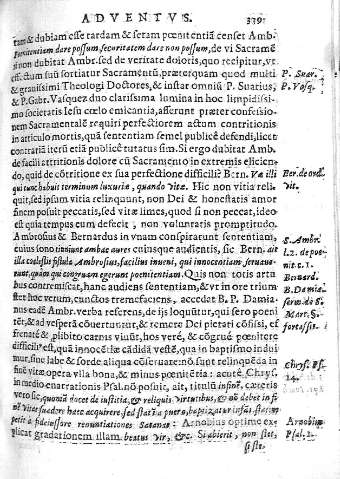 ADVENTVS. 339
tam & dubiam esse tardam & seram pœnitentiã censet Amb.
pœnitentiam dare possum, securitatem dare non possum, de vi Sacramẽ
ti non dubitat Ambr. sed de veritate doloris, quo recipitur, vt
effectum suũ sortiatur Sacramentũ, præterquam quod multi
& grauissimi Theologi Doctores, & instar omniũ P. Suarius,
& P. Gabr. Vasquez duo clarissima lumina in hoc limpidissi-
mo societatis Iesu cœlo emicantia, asserunt præter confessio-
nem Sacramentalẽ requiri perfectiorem actum contritionis
in articulo mortis, quã sententiam semel publicè defendi, licet
contrariã iterũ etiã publicè tutatus sim. Si ergo dubitat Amb.
de facili attritionis dolore cũ Sacramento in extremis elicien-
do, quid de cõtritione ex se perfectiore difficili? Bern. Væ illi
qui tunc habuit terminum luxuriæ, quando vitæ. Hic non vitia reli-
quit, sed ipsum vitia relinquunt, non Dei & honestatis amor
finem posuit peccatis, sed vitæ limes, quod si non peccat, ideo
est quia tempus cum defecit, non voluntatis promptitudo.
Ambrosius & Bernardus in vnam conspirarunt sententiam,
cuius sono tinniunt ambæ aures cuiusque audientis, sic Bern.
illa cœlestis fistula Ambrosius, facilius inueni, qui innocentiam seruaue-
runt, quàm qui congruam egerunt pœnitentiam. Quis non totis artu-
bus contremiscat, hanc audiens sententiam, & vt in ore trium
stet hoc verum, cunctos tremefaciens, accedat B. P. Damia-
nus eadẽ Ambr. verba referens, de ijs loquũtur, qui sero pœni
tẽt, & ad vesperã cõuertuntur, & remore Dei pietati cõfisi, ef
frenatè, & plibito carnis viuũt, hos verè, & cõgruè pœnitere
difficile est, quã innocẽtiæ cãdidã vestẽ, qua in baptismo indui
mur, sine labe & sorde aliqua cõseruare: nõ supt relinquẽda in
fine vitæ opera vlla bona, & minus pœnitentia: acutè Chrys.
in medio enarrationis Psal. nõ posuit, ait, titulũ infinẽ, cæteris
vero sic, quoniã docet de iustitia, & reliquis virtutibus, & nõ debet in fi
nẽ vitæ suadere hæc acquirere, sed statĩ a puero, baptizatur infãs statim
petit à fideiussore renuntiationes Satanæ: Arnobius optime ex
plicat gradationem illam, beatus vir, &c. Si abierit, non stet,
si ste-
P. Suar.
P. Vasq.
Vit.
S. Ambr.
l. 2. de pœ-
Bernard.
B. Damia-
Mar. S.
Chrys. Ps.
14.
Arnobius
Psal. 1.